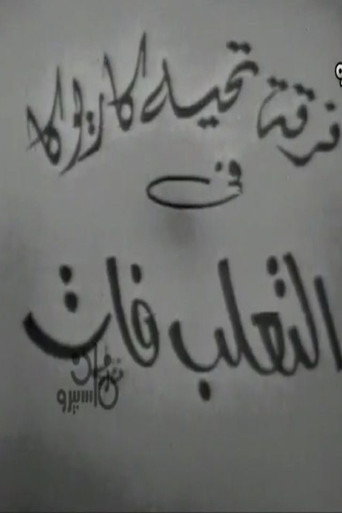 فرقة تحيه كاريوكا
فى
الثعلب فات